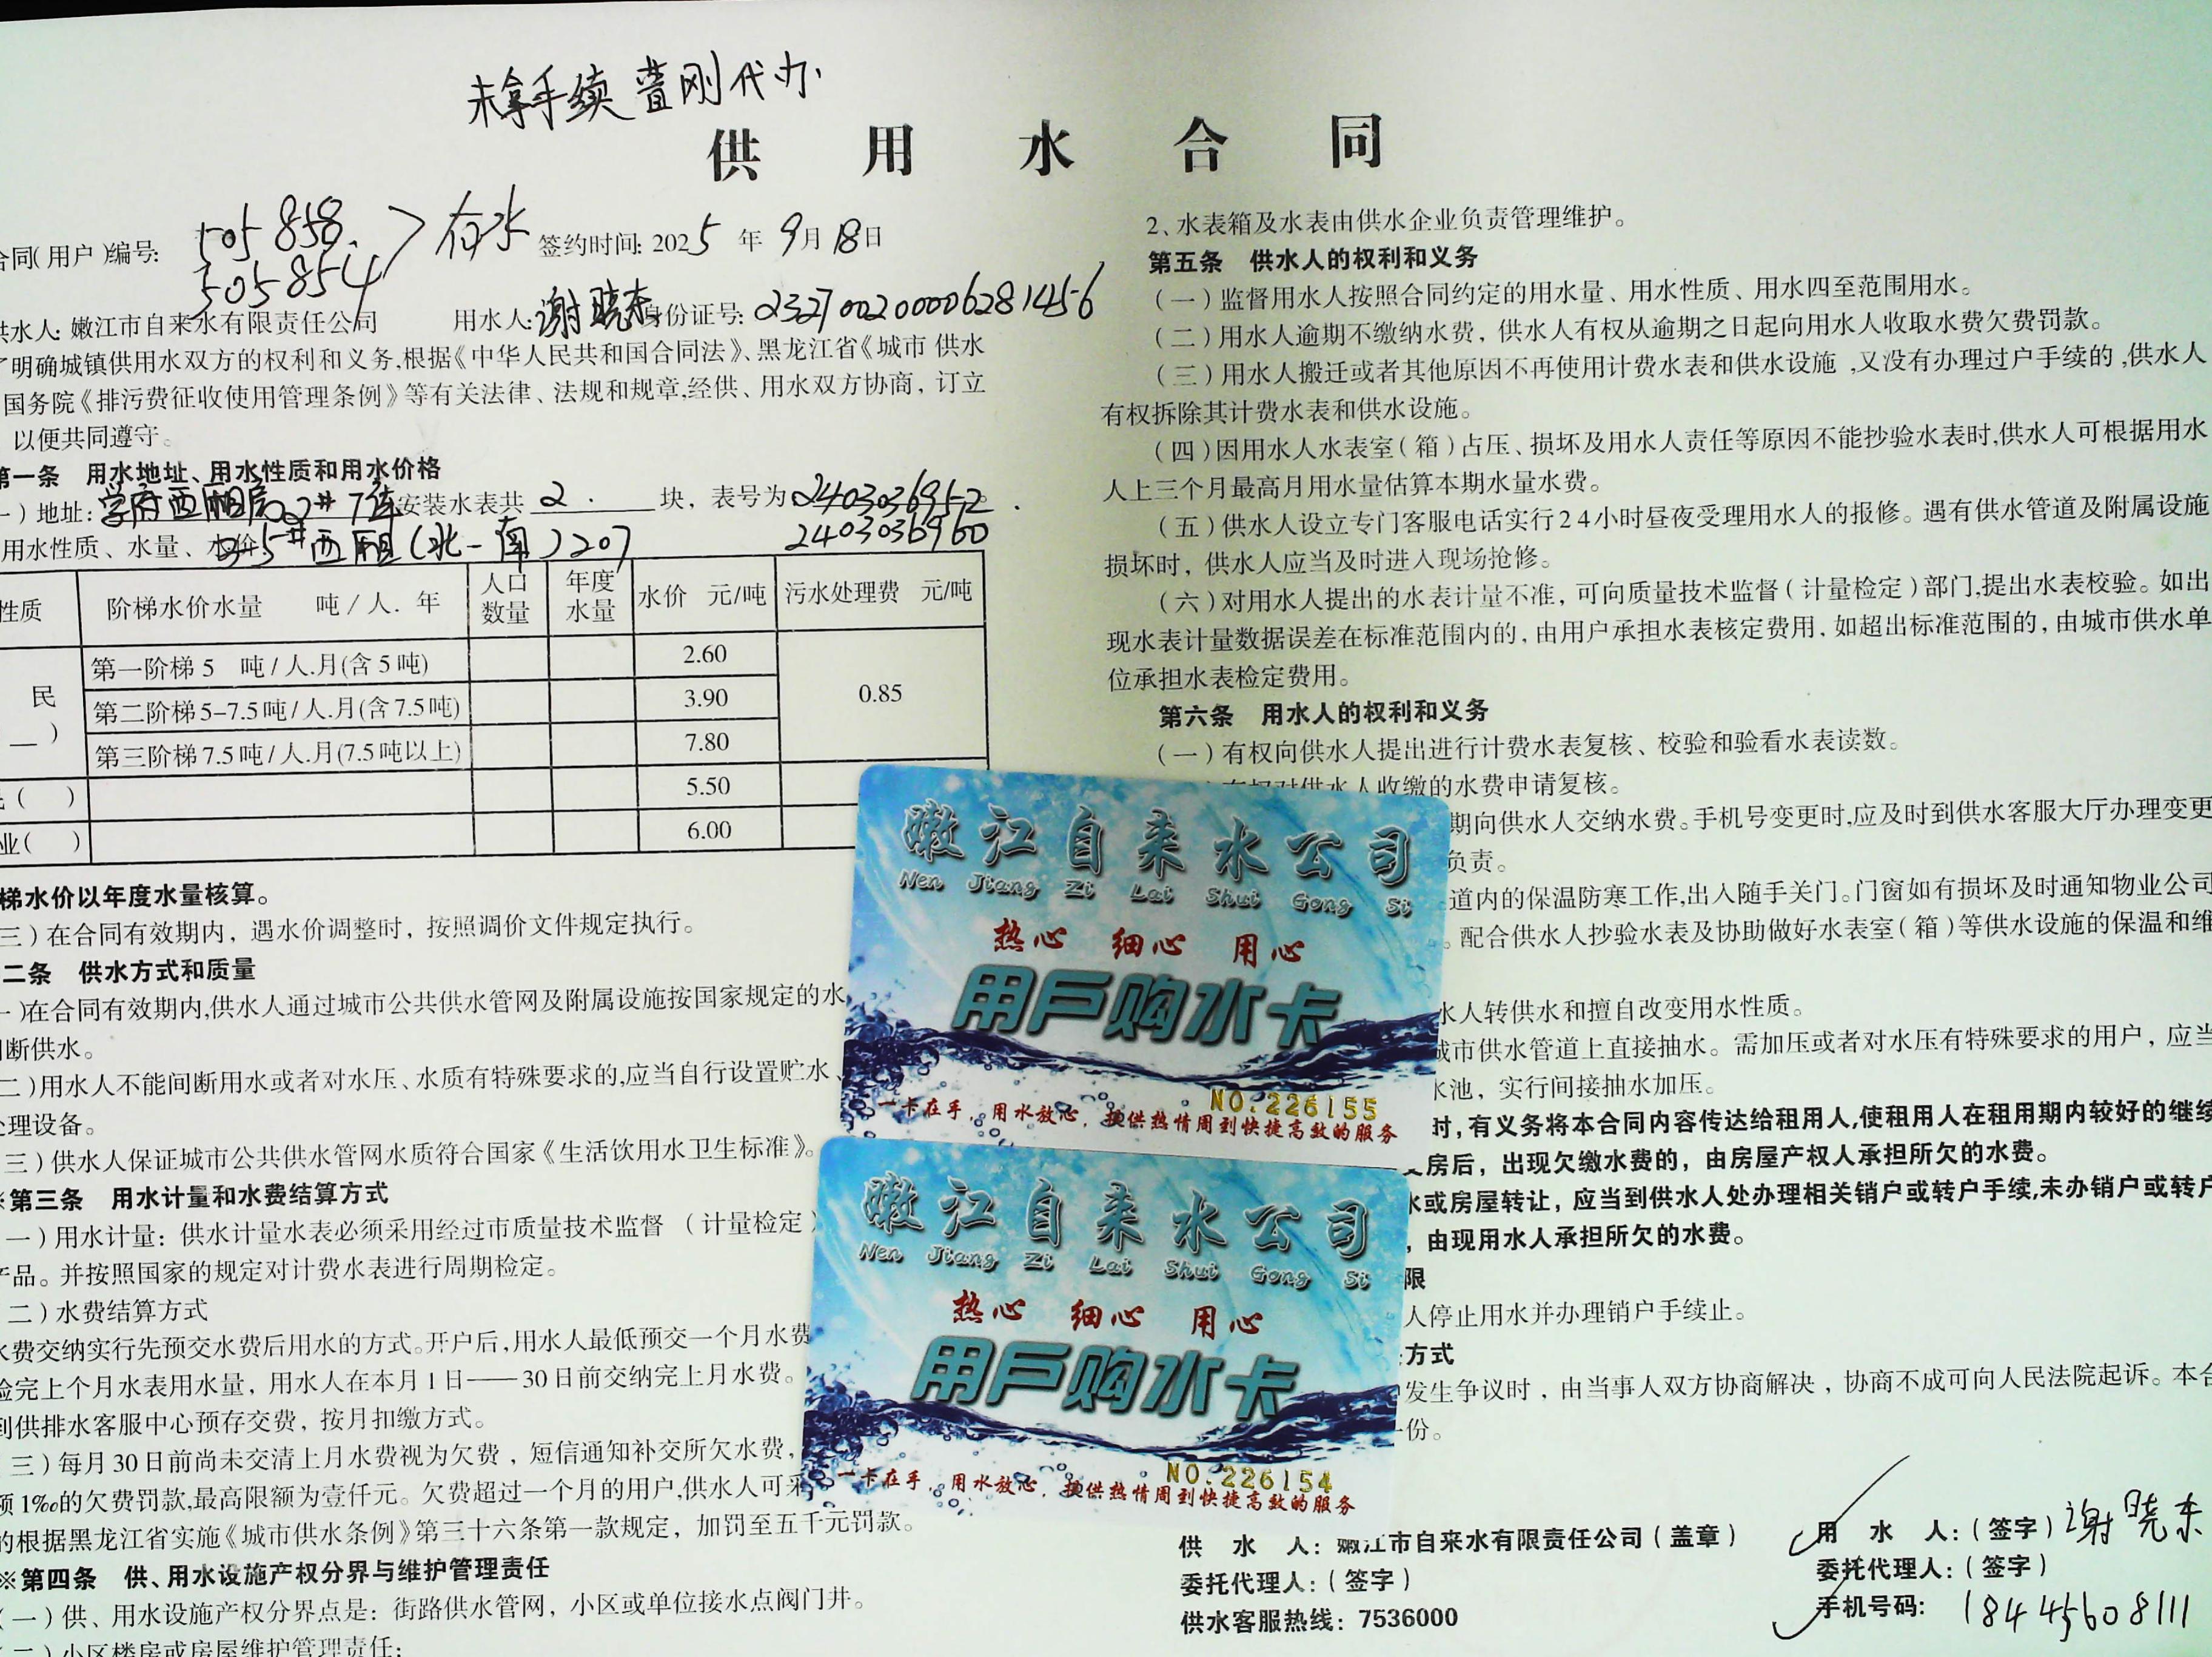 未拿手续 董刚代办
供用水合同
合同(用户)编号: 505858 505854 > 有水 签约时间: 2025年9月18日
供水人: 嫩江市自来水有限责任公司 用水人: 谢晓东 身份证号: 232700200006281456
了明确城镇供用水双方的权利和义务,根据《中华人民共和国合同法》、黑龙江省《城市供水
国务院《排污费征收使用管理条例》等有关法律、法规和规章,经供、用水双方协商，订立
以便共同遵守。
第一条 用水地址、用水性质和用水价格
一）地址: 学府西厢房 2# 7 安装水表共 2 块，表号为 2403036952。
用水性质、水量、水价 5#西厢(北-南)207 2403036960
性质 阶梯水价水量 吨/人.年 人口数量 年度水量 水价 元/吨 污水处理费 元/吨
民 第一阶梯5 吨/人.月(含5吨) 2.60 0.85
第二阶梯5-7.5吨/人.月(含7.5吨) 3.90
第三阶梯7.5吨/人.月(7.5吨以上) 7.80
( ) 5.50
业( ) 6.00
梯水价以年度水量核算。
三）在合同有效期内，遇水价调整时，按照调价文件规定执行。
二条 供水方式和质量
一)在合同有效期内,供水人通过城市公共供水管网及附属设施按国家规定的水
断供水。
二)用水人不能间断用水或者对水压、水质有特殊要求的,应当自行设置贮水、
处理设备。
三）供水人保证城市公共供水管网水质符合国家《生活饮用水卫生标准》。
※第三条 用水计量和水费结算方式
一）用水计量：供水计量水表必须采用经过市质量技术监督（计量检定）
产品。并按照国家的规定对计费水表进行周期检定。
二）水费结算方式
水费交纳实行先预交水费后用水的方式。开户后,用水人最低预交一个月水费
验完上个月水表用水量，用水人在本月1日——30日前交纳完上月水费。
到供排水客服中心预存交费，按月扣缴方式。
三）每月30日前尚未交清上月水费视为欠费，短信通知补交所欠水费，
额1‰的欠费罚款,最高限额为壹仟元。欠费超过一个月的用户,供水人可采
的根据黑龙江省实施《城市供水条例》第三十六条第一款规定，加罚至五千元罚款。
※第四条 供、用水设施产权分界与维护管理责任
（一）供、用水设施产权分界点是：街路供水管网，小区或单位接水点阀门井。
二）小区楼房或房屋维护管理责任：
2、水表箱及水表由供水企业负责管理维护。
第五条 供水人的权利和义务
（一）监督用水人按照合同约定的用水量、用水性质、用水四至范围用水。
（二）用水人逾期不缴纳水费，供水人有权从逾期之日起向用水人收取水费欠费罚款。
（三）用水人搬迁或者其他原因不再使用计费水表和供水设施,又没有办理过户手续的,供水人
有权拆除其计费水表和供水设施。
（四）因用水人水表室（箱）占压、损坏及用水人责任等原因不能抄验水表时,供水人可根据用水
人上三个月最高月用水量估算本期水量水费。
（五）供水人设立专门客服电话实行24小时昼夜受理用水人的报修。遇有供水管道及附属设施
损坏时，供水人应当及时进入现场抢修。
（六）对用水人提出的水表计量不准，可向质量技术监督（计量检定）部门,提出水表校验。如出
现水表计量数据误差在标准范围内的，由用户承担水表核定费用，如超出标准范围的，由城市供水单
位承担水表检定费用。
第六条 用水人的权利和义务
（一）有权向供水人提出进行计费水表复核、校验和验看水表读数。
有权对供水人收缴的水费申请复核。
期向供水人交纳水费。手机号变更时,应及时到供水客服大厅办理变更
负责。
道内的保温防寒工作,出入随手关门。门窗如有损坏及时通知物业公司
。配合供水人抄验水表及协助做好水表室（箱）等供水设施的保温和维
水人转供水和擅自改变用水性质。
城市供水管道上直接抽水。需加压或者对水压有特殊要求的用户，应当
水池，实行间接抽水加压。
时,有义务将本合同内容传达给租用人,使租用人在租用期内较好的继续
房后，出现欠缴水费的，由房屋产权人承担所欠的水费。
水或房屋转让，应当到供水人处办理相关销户或转户手续,未办销户或转户
，由现用水人承担所欠的水费。
限
人停止用水并办理销户手续止。
方式
发生争议时，由当事人双方协商解决，协商不成可向人民法院起诉。本合
份。
嫩江自来水公司
Nen Jiang Zi Lai Shui Gong Si
热心 细心 用心
用户购水卡
NO.226155
一卡在手，用水放心，提供热情周到快捷高效的服务
嫩江自来水公司
Nen Jiang Zi Lai Shui Gong Si
热心 细心 用心
用户购水卡
NO.226154
一卡在手，用水放心，提供热情周到快捷高效的服务
供水人：嫩江市自来水有限责任公司（盖章）
委托代理人：（签字）
供水客服热线：7536000
用水人：（签字）谢晓东
委托代理人：（签字）
手机号码：18445608111